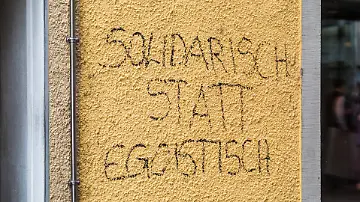 SOLIDARISCH
STATT
EGOISTISCH